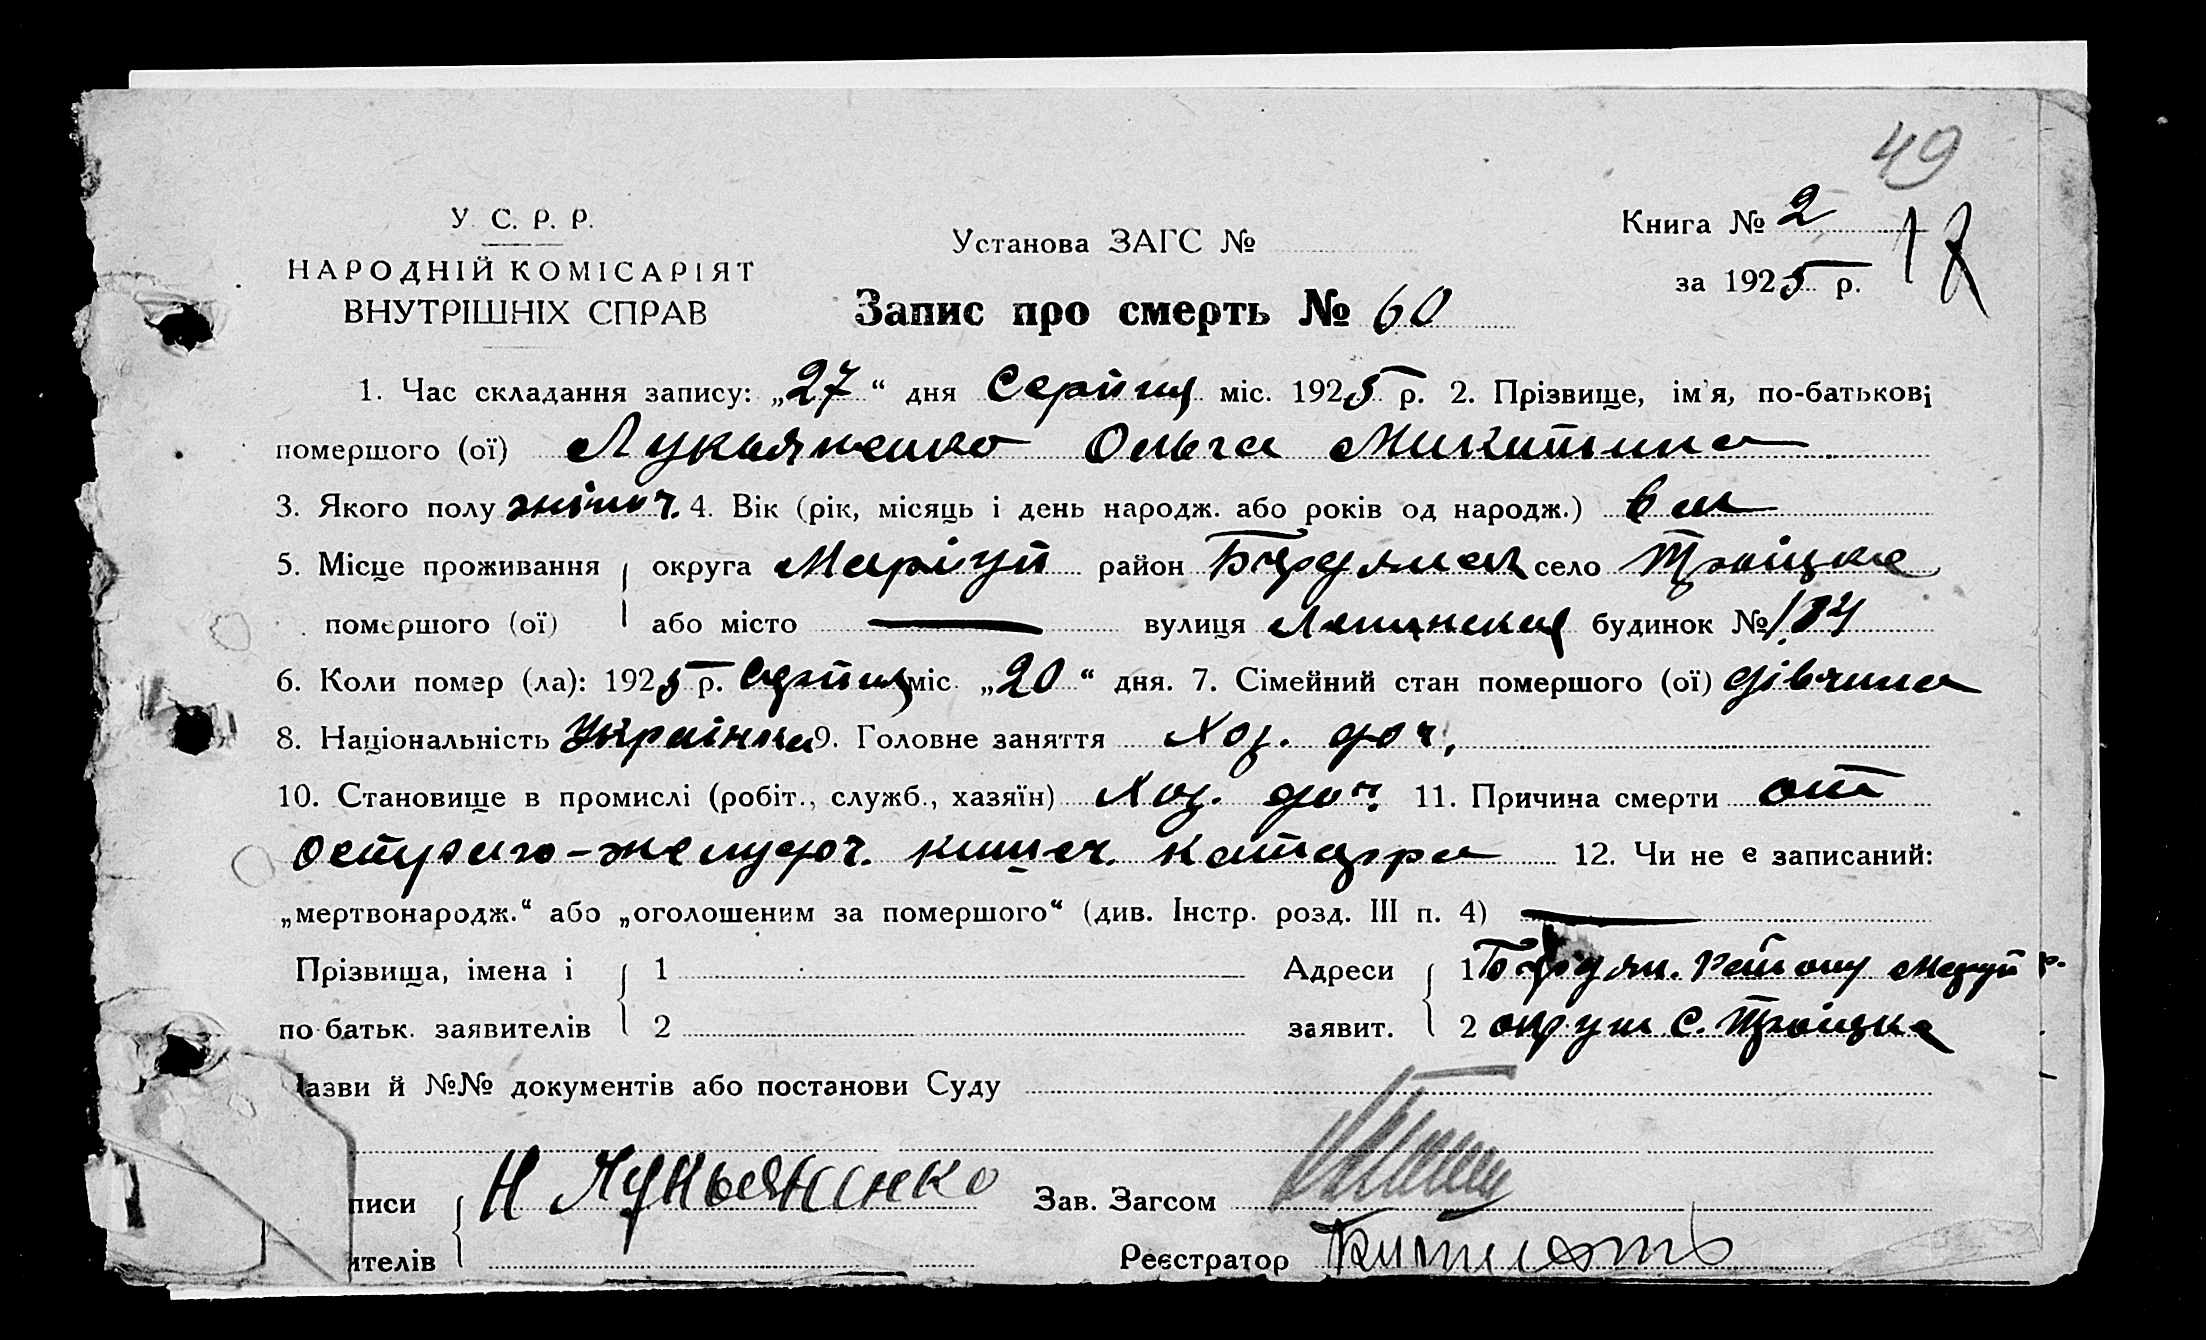 49
У. С. Р. Р.
НАРОДНІЙ КОМІСАРІЯТ
ВНУТРІШНІХ СПРАВ
Установа ЗАГС №
Книга № 2
17
за 1925 р.
Запис про смерть № 60
1. Час складання запису: „27“ дня Серпня міс. 1925 р. 2. Прізвище, ім'я, по-батькові
помершого (ої) Лукьяненко Ольга Микитына
3. Якого полу жіноч. 4. Вік (рік, місяць і день народж. або років од народж.) 6 м
5. Місце проживання округа Маріуп район Бердянск село Троіцке
помершого (ої) або місто — вулиця Ленинская будинок № 184
6. Коли помер (ла): 1925 р. Серпня міс. „20“ дня. 7. Сімейний стан помершого (ої) дівчина
8. Національність Украінка 9. Головне заняття Хоз. доч.
10. Становище в промислі (робіт., служб., хазяїн) Хоз. доч. 11. Причина смерти от
острого-желудоч. кишеч. катара 12. Чи не є записаний:
„мертвонародж.“ або „оголошеним за помершого“ (див. Інстр. розд. III п. 4) —
Прізвища, імена і 1 Адреси 1 Бердян. району
по батьк. заявителів 2 заявит. 2 округи с. Троіцке
Назви й №№ документів або постанови Суду
писи Н Лукьяненко Зав. Загсом
ителів Реєстратор